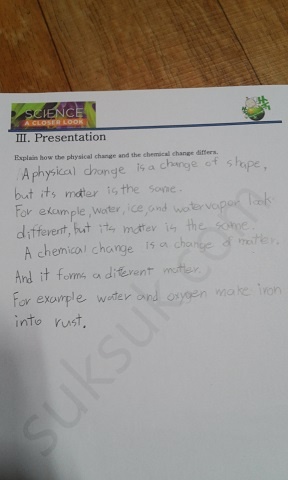 SCIENCE
A CLOSER LOOK
III. Presentation
Explain how the physical change and the chemical change differs.
A physical change is a change of shape,
but its matter is the same.
For example, water, ice, and water vapor look
different, but its matter is the same.
A chemical change is a change of matter.
And it forms a different matter.
For example water and oxygen make iron
into rust.
suksuk.com